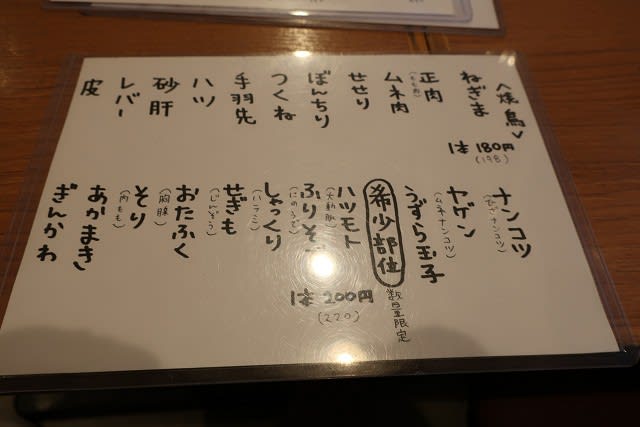 <焼鳥>
1本 180円
(198)
ねぎま
正肉
(もも肉)
ムネ肉
せせり
ぼんちり
つくね
手羽先
ハツ
砂肝
レバー
皮
ナンコツ
(ひざナンコツ)
ヤゲン
(ムネナンコツ)
うずら玉子
希少部位
数量限定
1本 200円
(220)
ハツモト
(大動脈)
ふりそで
(にのうで)
しゃっくり
(ハラミ)
せぎも
(じんぞう)
おたふく
(胸腺)
そり
(内もも)
あかまき
ぎんかわ